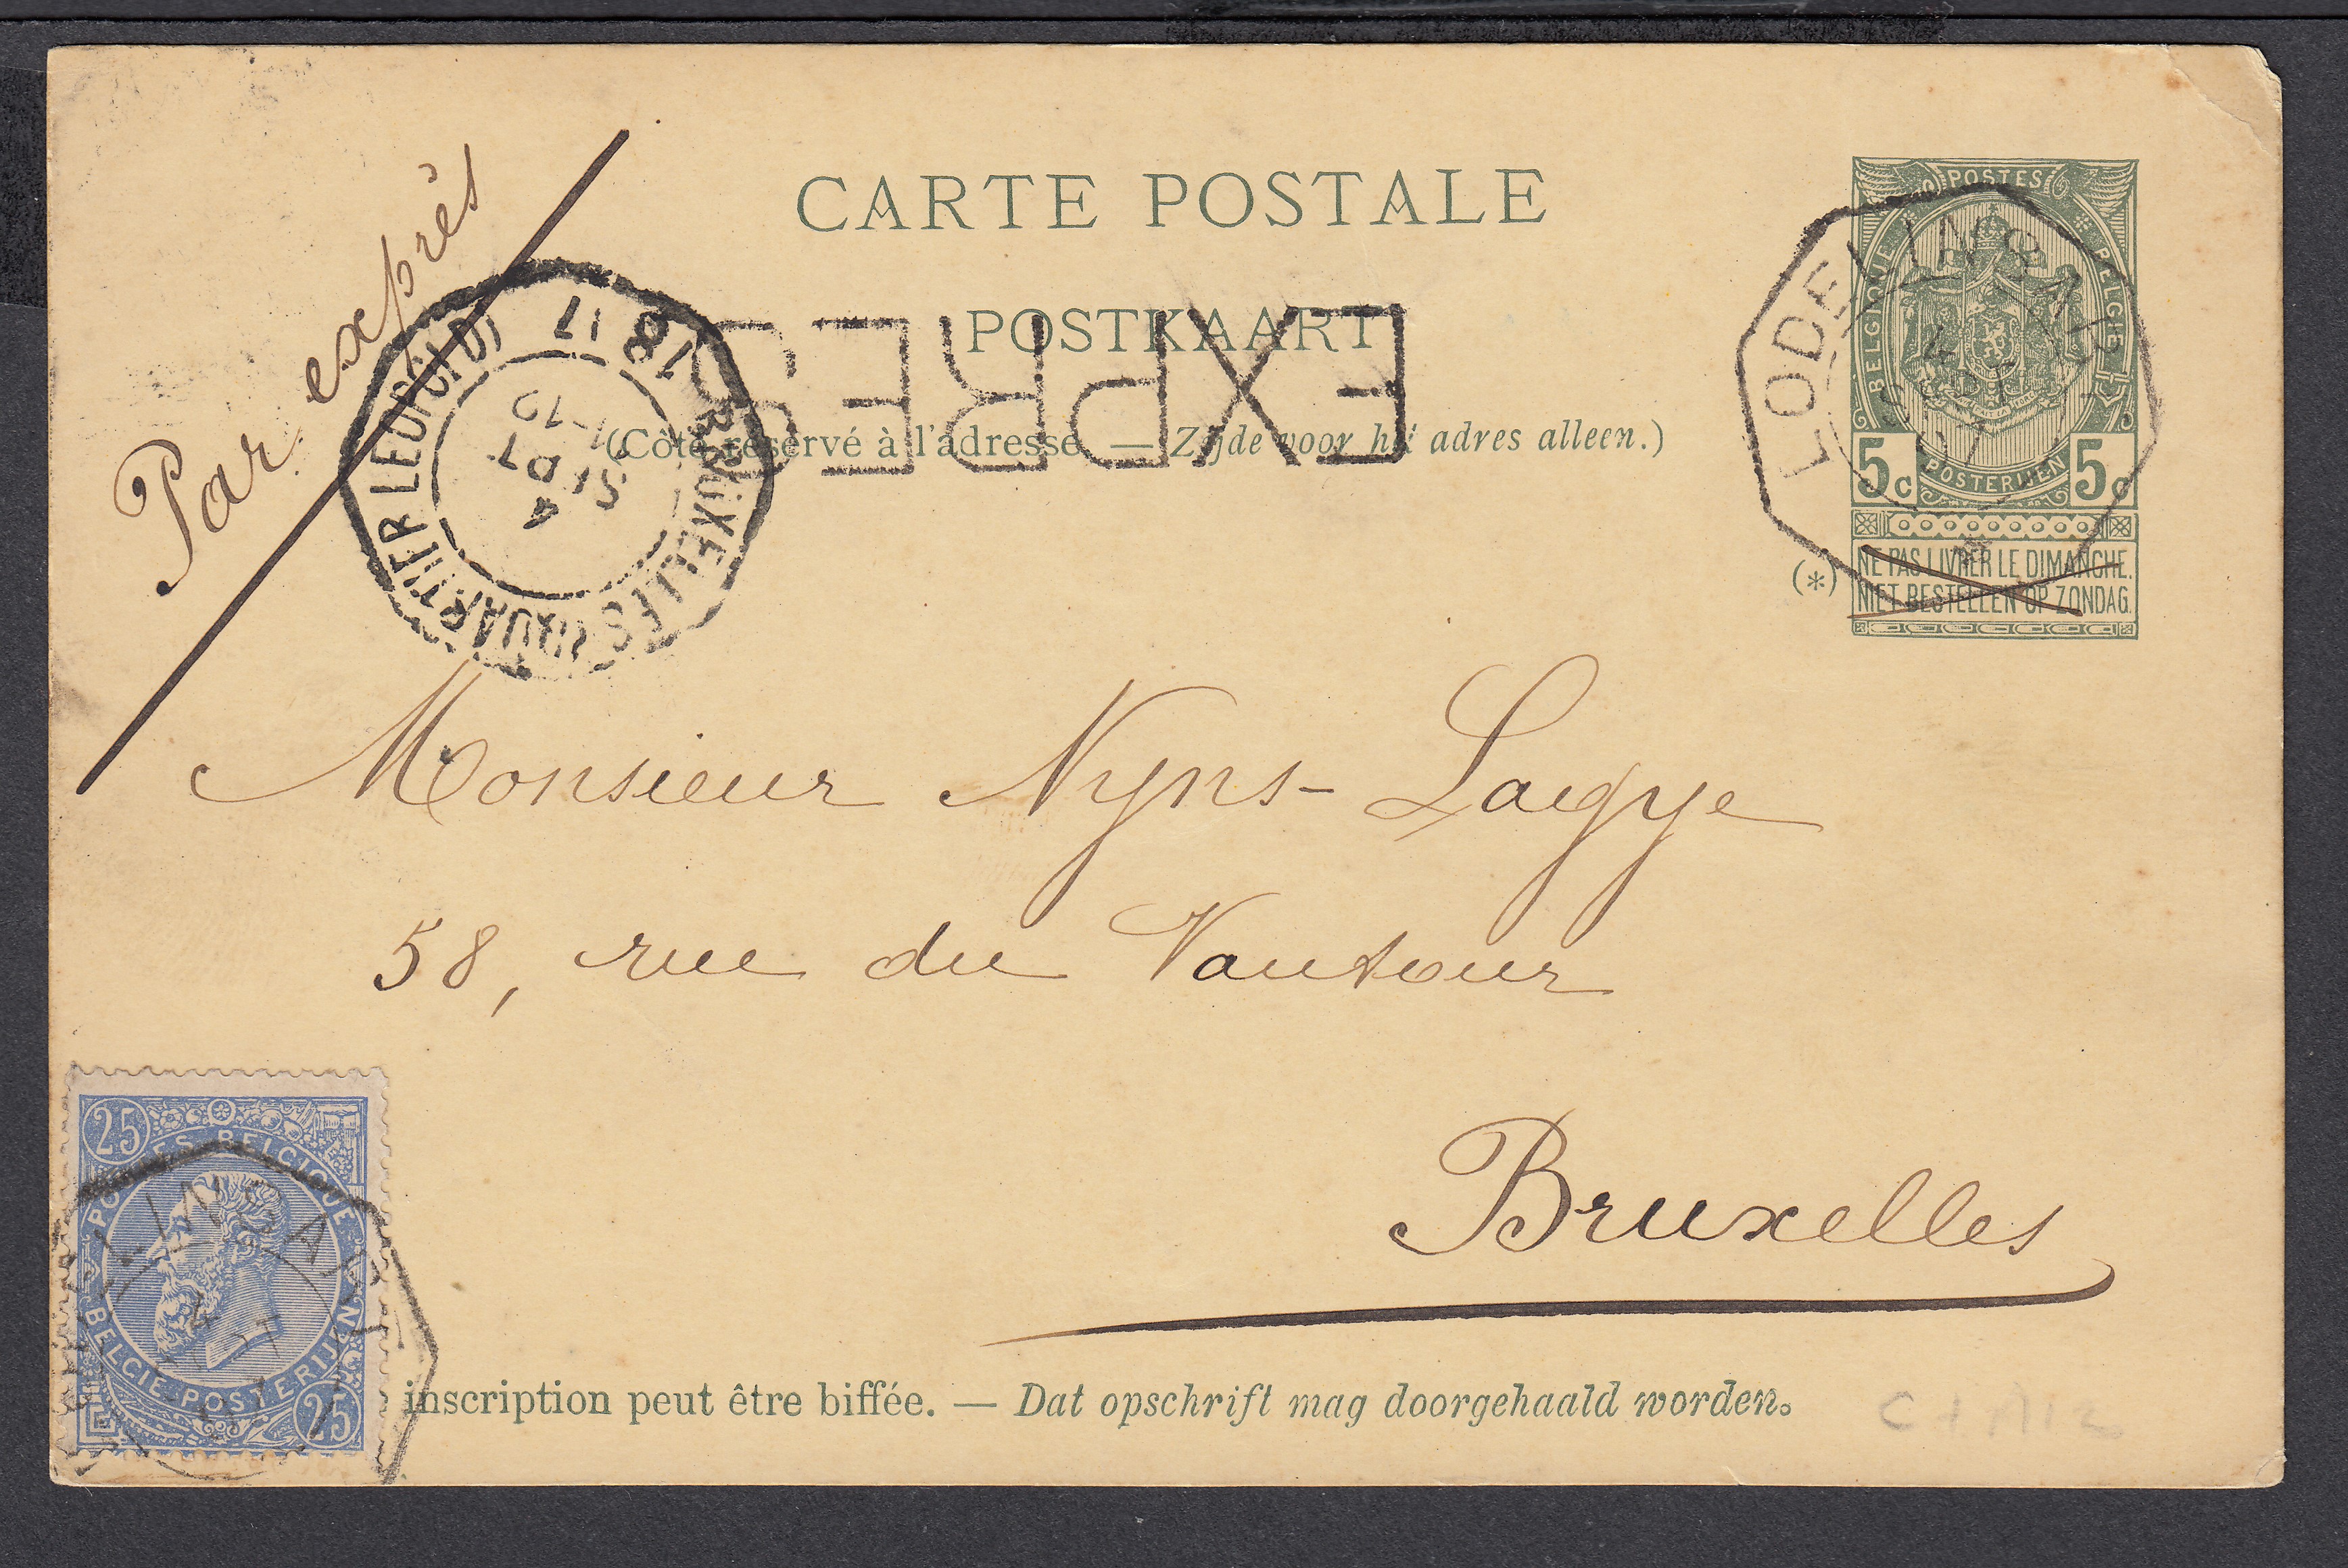 CARTE POSTALE
POSTKAART
(Côté réservé à l'adresse. — Zijde voor het adres alleen.)
Par exprès
EXPRES
BRUXELLES QUARTIER LEOPOLD)
4
SEPT
POSTES
BELGIQUE BELGIE
5c POSTERIJEN 5c
(*) NE PAS LIVRER LE DIMANCHE.
NIET BESTELLEN OP ZONDAG.
LODELINSART
4
Monsieur Nyns-Lagye
58, rue du Vautour
Bruxelles
25
POSTES BELGIQUE
BELGIE POSTERIJEN
25
LINSART
4
inscription peut être biffée. — Dat opschrift mag doorgehaald worden.